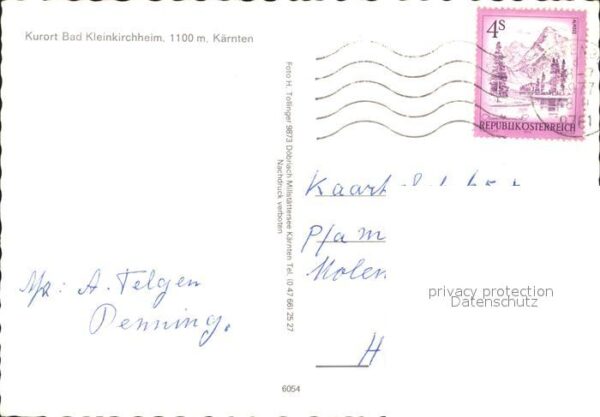 Kurort Bad Kleinkirchheim, 1100 m, Kärnten
4S
REPUBLIK ÖSTERREICH
Foto H. Tollinger 9873 Döbriach Millstättersee Kärnten Tel. (0 47 66) 25 27
Nachdruck verboten
Kaart
Pfam
Molen
A. Telgen
Penning.
privacy protection
Datenschutz
H
6054